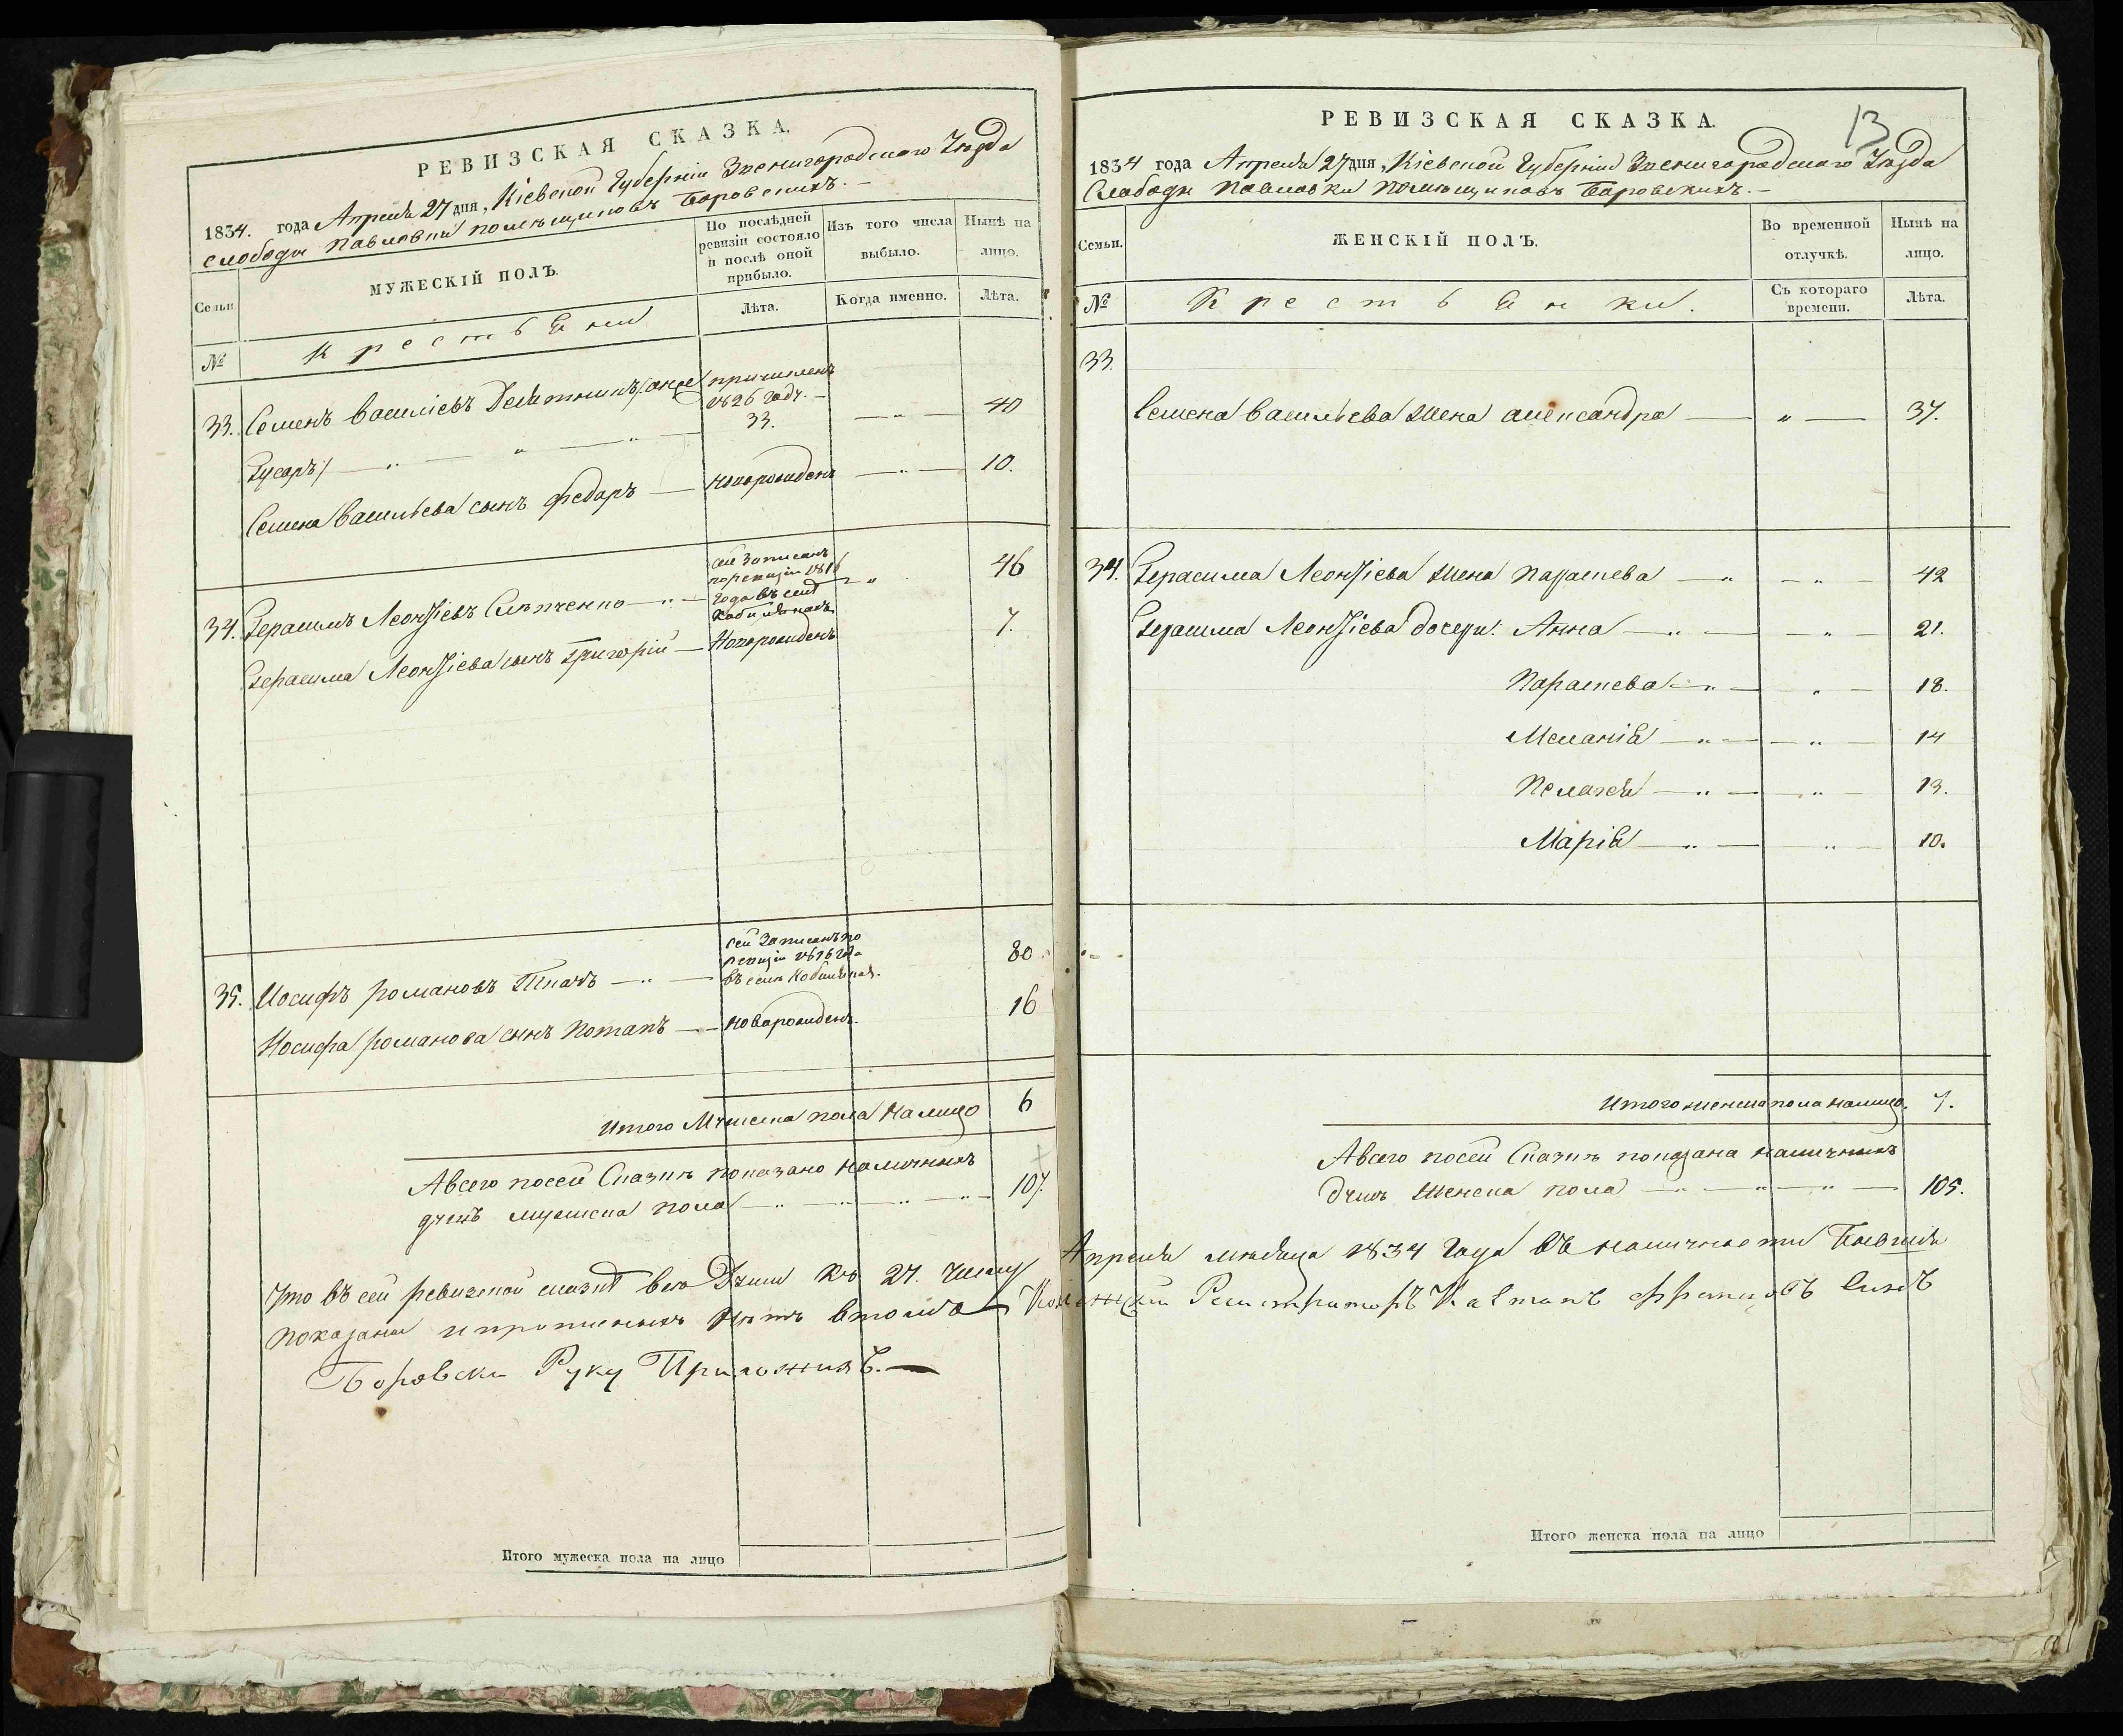 РЕВИЗСКАЯ СКАЗКА.
1834. года Апреля 27 дня, Кіевской Губерніи Звенигородского Уѣзда
слободы Павловки помѣщиковъ Боровскихъ.
Семьи
МУЖЕСКІЙ ПОЛЪ.
По послѣдней ревизіи состояло и послѣ оной прибыло.
Изъ того числа выбыло.
Нынѣ на лицо.
№
Крестьяни
Лѣта.
Когда именно.
Лѣта.
33. Семенъ Василіевъ причисленъ
1826 году.
Гусаръ) 33. 40
Семена Васильева сынъ Федаръ новорожденъ 10.
сей записанъ
по ревизіи 1816
34. Герасимъ Леонтіевъ года въ селѣ 46
Герасима Леонтіева сынъ Григорій Новорожденъ 7.
сей записанъ по
ревизіи 1816 года
35. Иосифъ Романовъ Ткачъ въ селѣ 80
Иосифа Романова сынъ Потапъ новорожденъ. 16
Итого Мужеска пола На лицо 6
А всего по сей Сказкѣ показано наличныхъ
душъ мужеска пола 107.
Что въ сей ревизской сказкѣ все Души къ 27. числу
показаны
Боровски Руку Приложилъ.
Итого мужеска пола на лицо
13
РЕВИЗСКАЯ СКАЗКА.
1834 года Апреля 27 дня, Кіевской Губерніи Звенигородского Уѣзда
Слободы Павловки помѣщиковъ Боровскихъ.
Семьи.
ЖЕНСКІЙ ПОЛЪ.
Во временной отлучкѣ.
Нынѣ на лицо.
№
Крестьянки.
Съ котораго времени.
Лѣта.
33.
Семена Васильева Жена Александра 37.
34. Герасима Леонтіева Жена Параскева 42
Герасима Леонтіева дочери: Анна 21.
Параскева 18.
Меланія 14
Пелагея 13.
Марія 10.
Итого женска пола налицо. 7.
А всего по сей Сказкѣ показана наличныхъ
душъ Женска пола 105.
Апреля мѣсяца 1834 года въ наличности
Регистраторъ
Итого женска пола на лицо